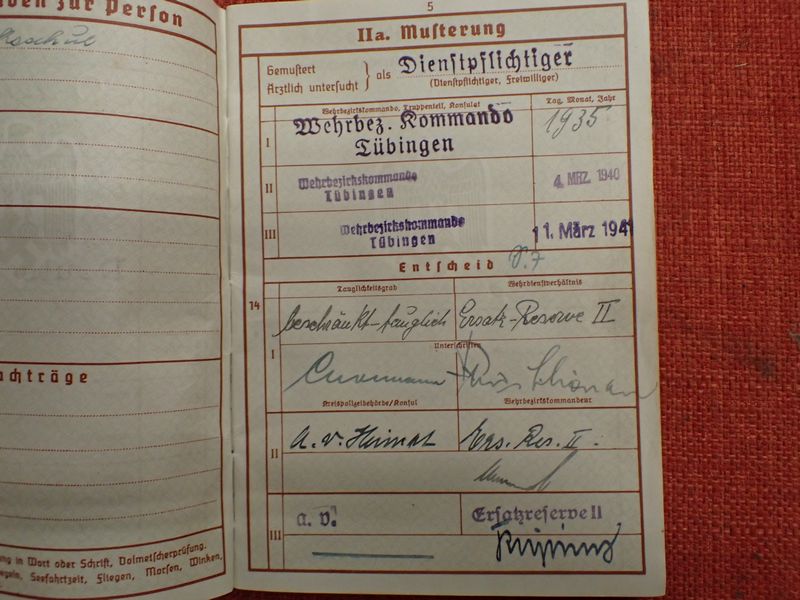 ben zur Person
5
IIa. Musterung
Gemustert
Ärztlich untersucht } als Dienstpflichtiger
(Dienstpflichtiger, Freiwilliger)
Wehrbezirkskommando, Truppenteil, Konsulat
Tag, Monat, Jahr
I Wehrbez. Kommando Tübingen 1935
II Wehrbezirkskommando Tübingen 4. MRZ. 1940
III Wehrbezirkskommando Tübingen 11. März 1941
Entscheid
14
Tauglichkeitsgrad Wehrdienstverhältnis
beschränkt-tauglich Ersatz-Reserve II
I
Unterschriften
Kreispolizeibehörde/Konsul Wehrbezirkskommandeur
II a. v. Heimat Ers. Res. II.
III a. v. Ersatzreserve II
achträge
ung in Wort oder Schrift, Dolmetscherprüfung.
egeln, Seefahrtzeit, Fliegen, Morsen, Winken,